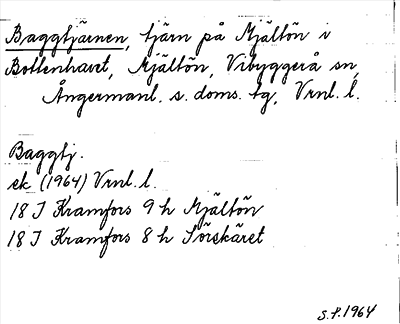 Baggtjärnen, tjärn på Mjältön i
Bottenhavet, Mjältön, Vibyggerå sn,
Ångermanl. s. doms. tg, Vrnl. l.
Baggtj.
ek (1964) Vrnl. l.
18 J Kramfors 9 h Mjältön
18 J Kramfors 8 h Sörskäret
S.P. 1964